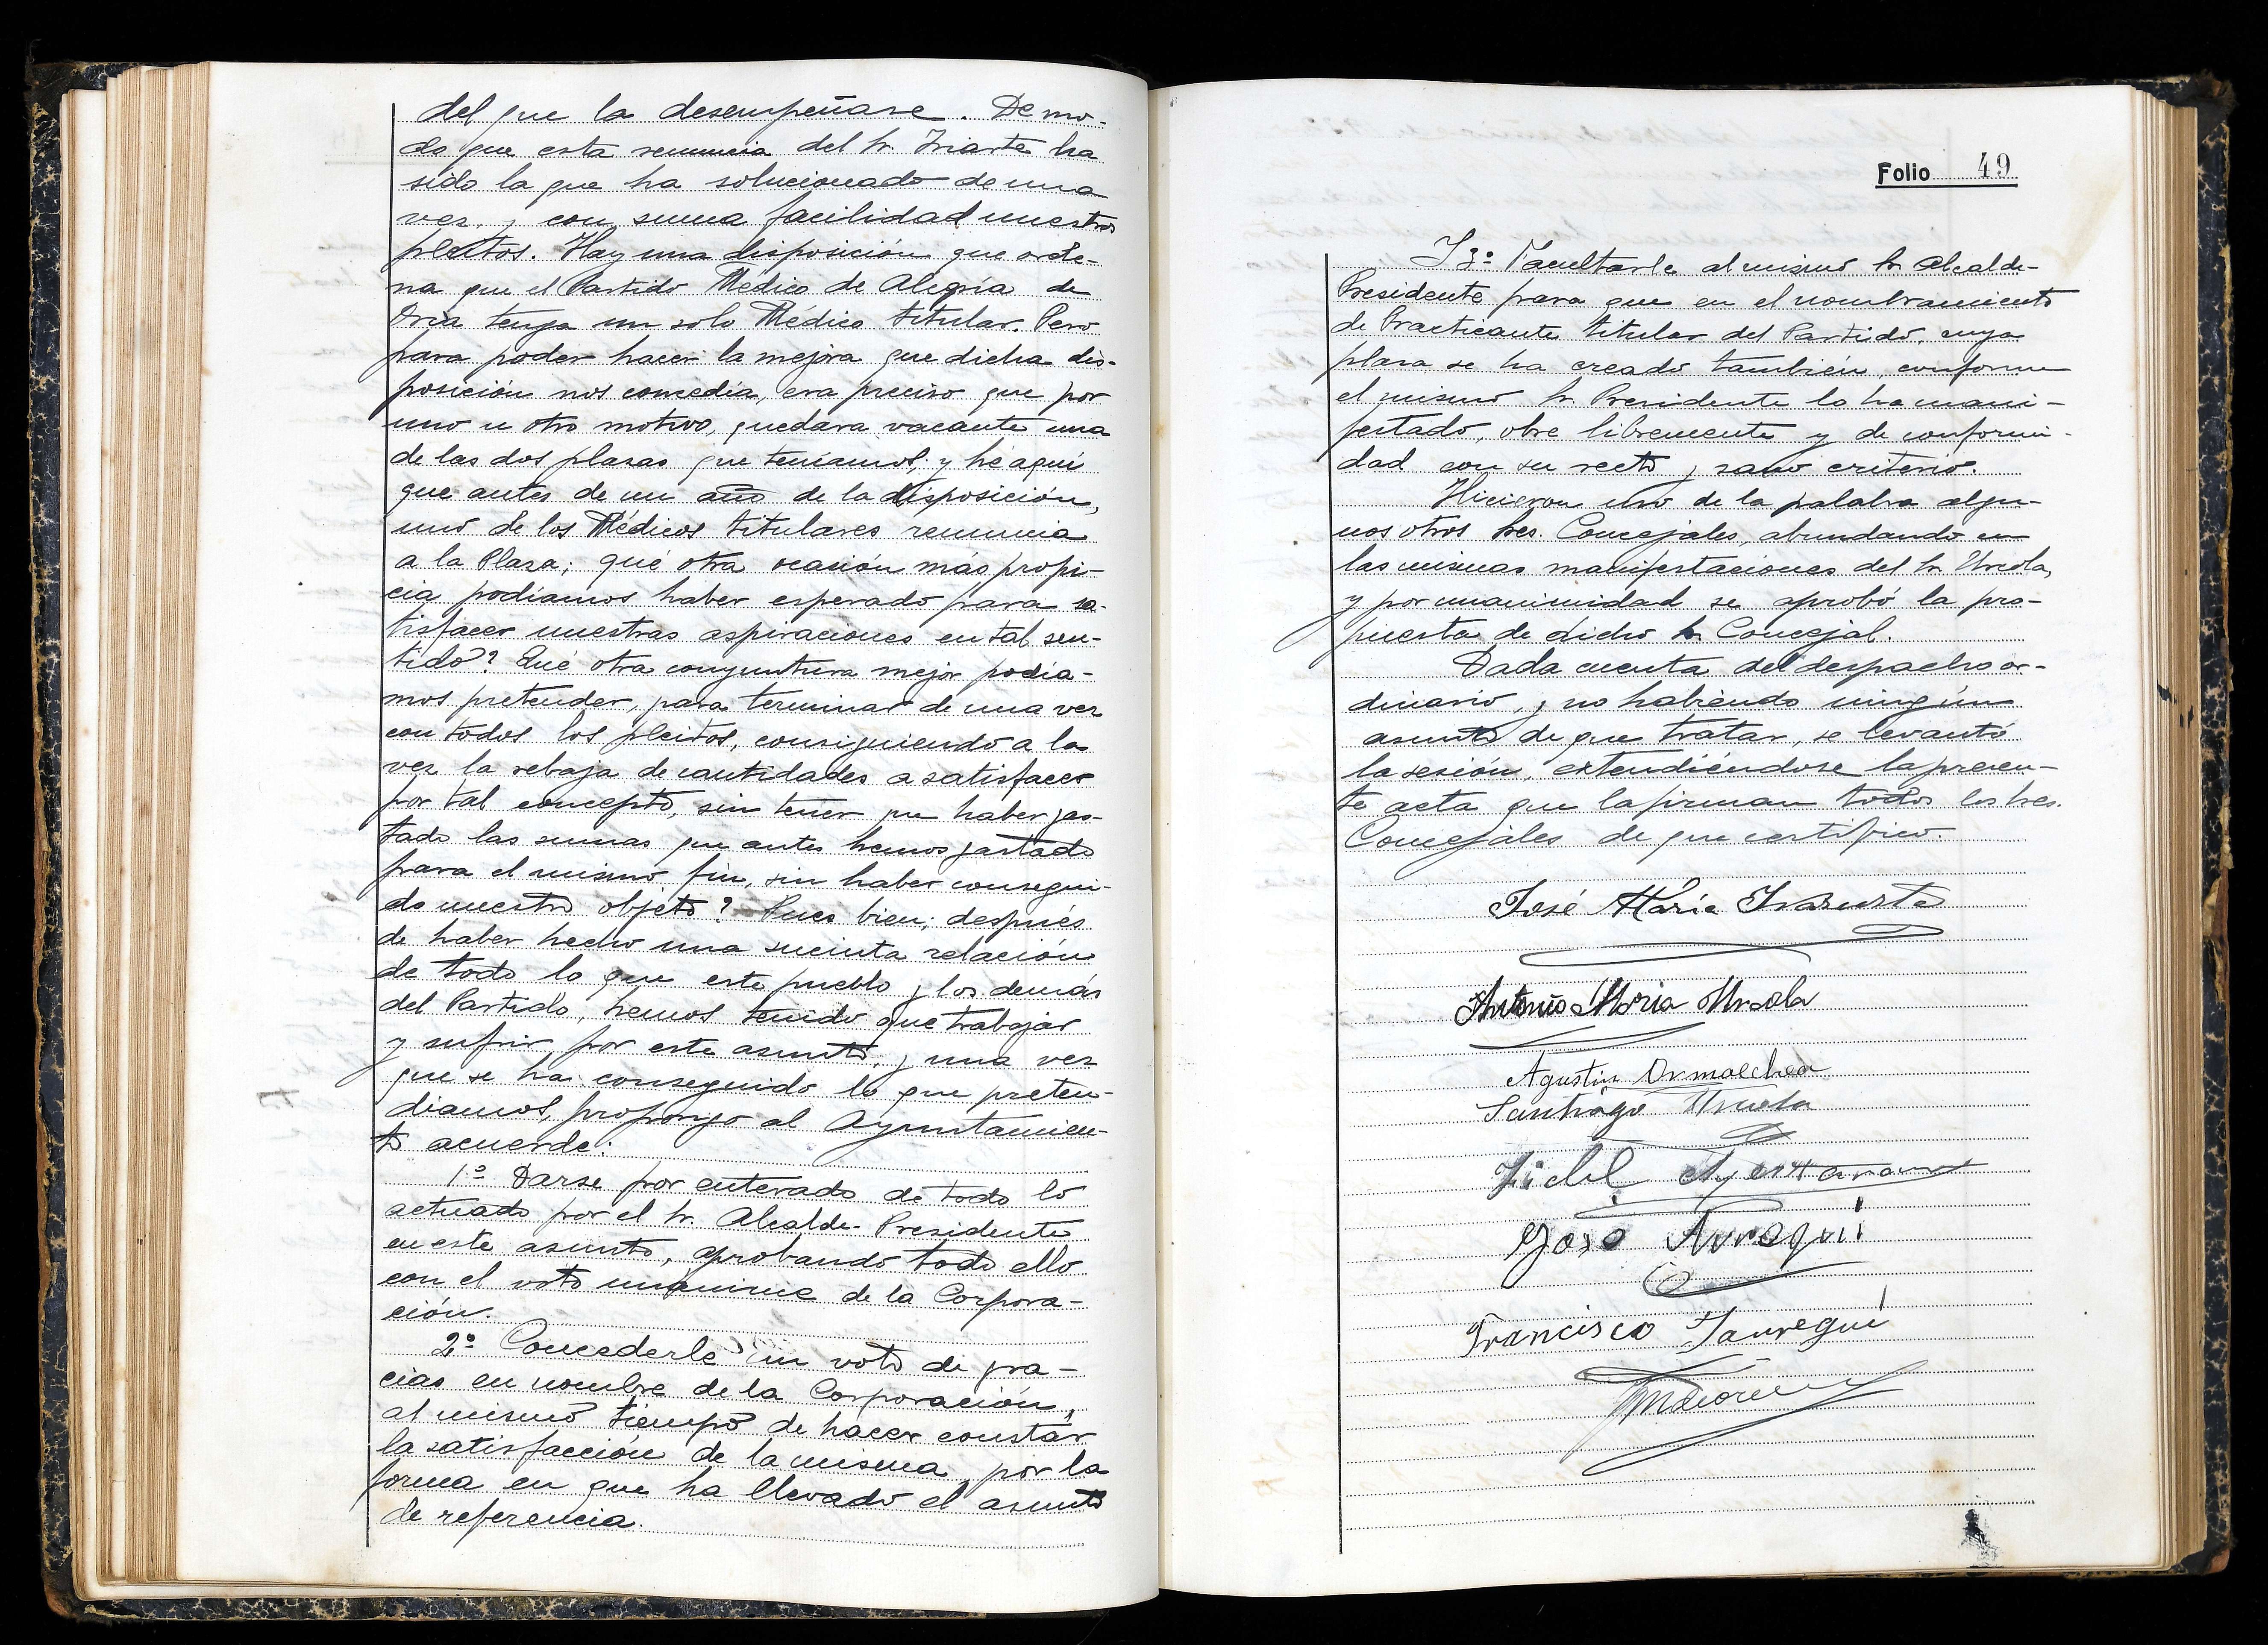 del que la desempeñase. De mo-
do que esta renuncia del Sr. Iriarte ha
sido la que ha solucionado de una
vez, y con suma facilidad nuestros
pleitos. Hay una disposición que orde-
na que el Partido Médico de Alegría de
Oria tenga un solo Médico titular. Pero
para poder hacer la mejora que dicha dis-
posición nos concedía, era preciso que por
uno u otro motivo, quedara vacante una
de las dos plazas que teníamos; y hé aquí
que antes de un año de la disposición,
uno de los Médicos titulares renuncia
a la Plaza; qué otra ocasión más propi-
cia podíamos haber esperado para sa-
tisfacer nuestras aspiraciones en tal sen-
tido? Qué otra conyuntura mejor podía-
mos pretender, para terminar de una vez
con todos los pleitos, consiguiendo a la
vez la rebaja de cantidades a satisfacer
por tal concepto, sin tener que haber gas-
tado las sumas que antes hemos gastado
para el mismo fin, sin haber consegui-
do nuestro objeto? Pues bien; después
de haber hecho una sucinta relación
de todo lo que este pueblo y los demás
del Partido, hemos tenido que trabajar
y sufrir por este asunto, y una vez
que se ha conseguido lo que preten-
díamos, propongo al Ayuntamien-
to acuerde:
1º Darse por enterado de todo lo
actuado por el Sr. Alcalde-Presidente
en este asunto, aprobando todo ello
con el voto unánime de la Corpora-
ción.
2º Concederle un voto de gra-
cias en nombre de la Corporación,
al mismo tiempo de hacer constar
la satisfacción de la misma, por la
forma en que ha llevado el asunto
de referencia.
Folio 49
Y 3º Facultarle al mismo Sr. Alcalde-
Presidente para que en el nombramiento
de Practicante titular del Partido, cuya
plaza se ha creado también, conforme
el mismo Sr. Presidente lo ha mani-
festado, obre libremente y de conformi-
dad con su recto y sano criterio.
Hicieron uso de la palabra algu-
nos otros Sres. Concejales, abundando en
las mismas manifestaciones del Sr. Urcola,
y por unanimidad se aprobó la pro-
puesta de dicho Sr. Concejal.
Dada cuenta del despacho or-
dinario, y no habiendo ningún
asunto de que tratar, se levantó
la sesión, extendiéndose la presen-
te acta que la firman todos los Sres.
Concejales de que certifico.
José María Irazusta
Antonio Maria Urcola
Agustin Ormaechea
Santiago
Fidel
José Aurregui
Francisco Jauregui